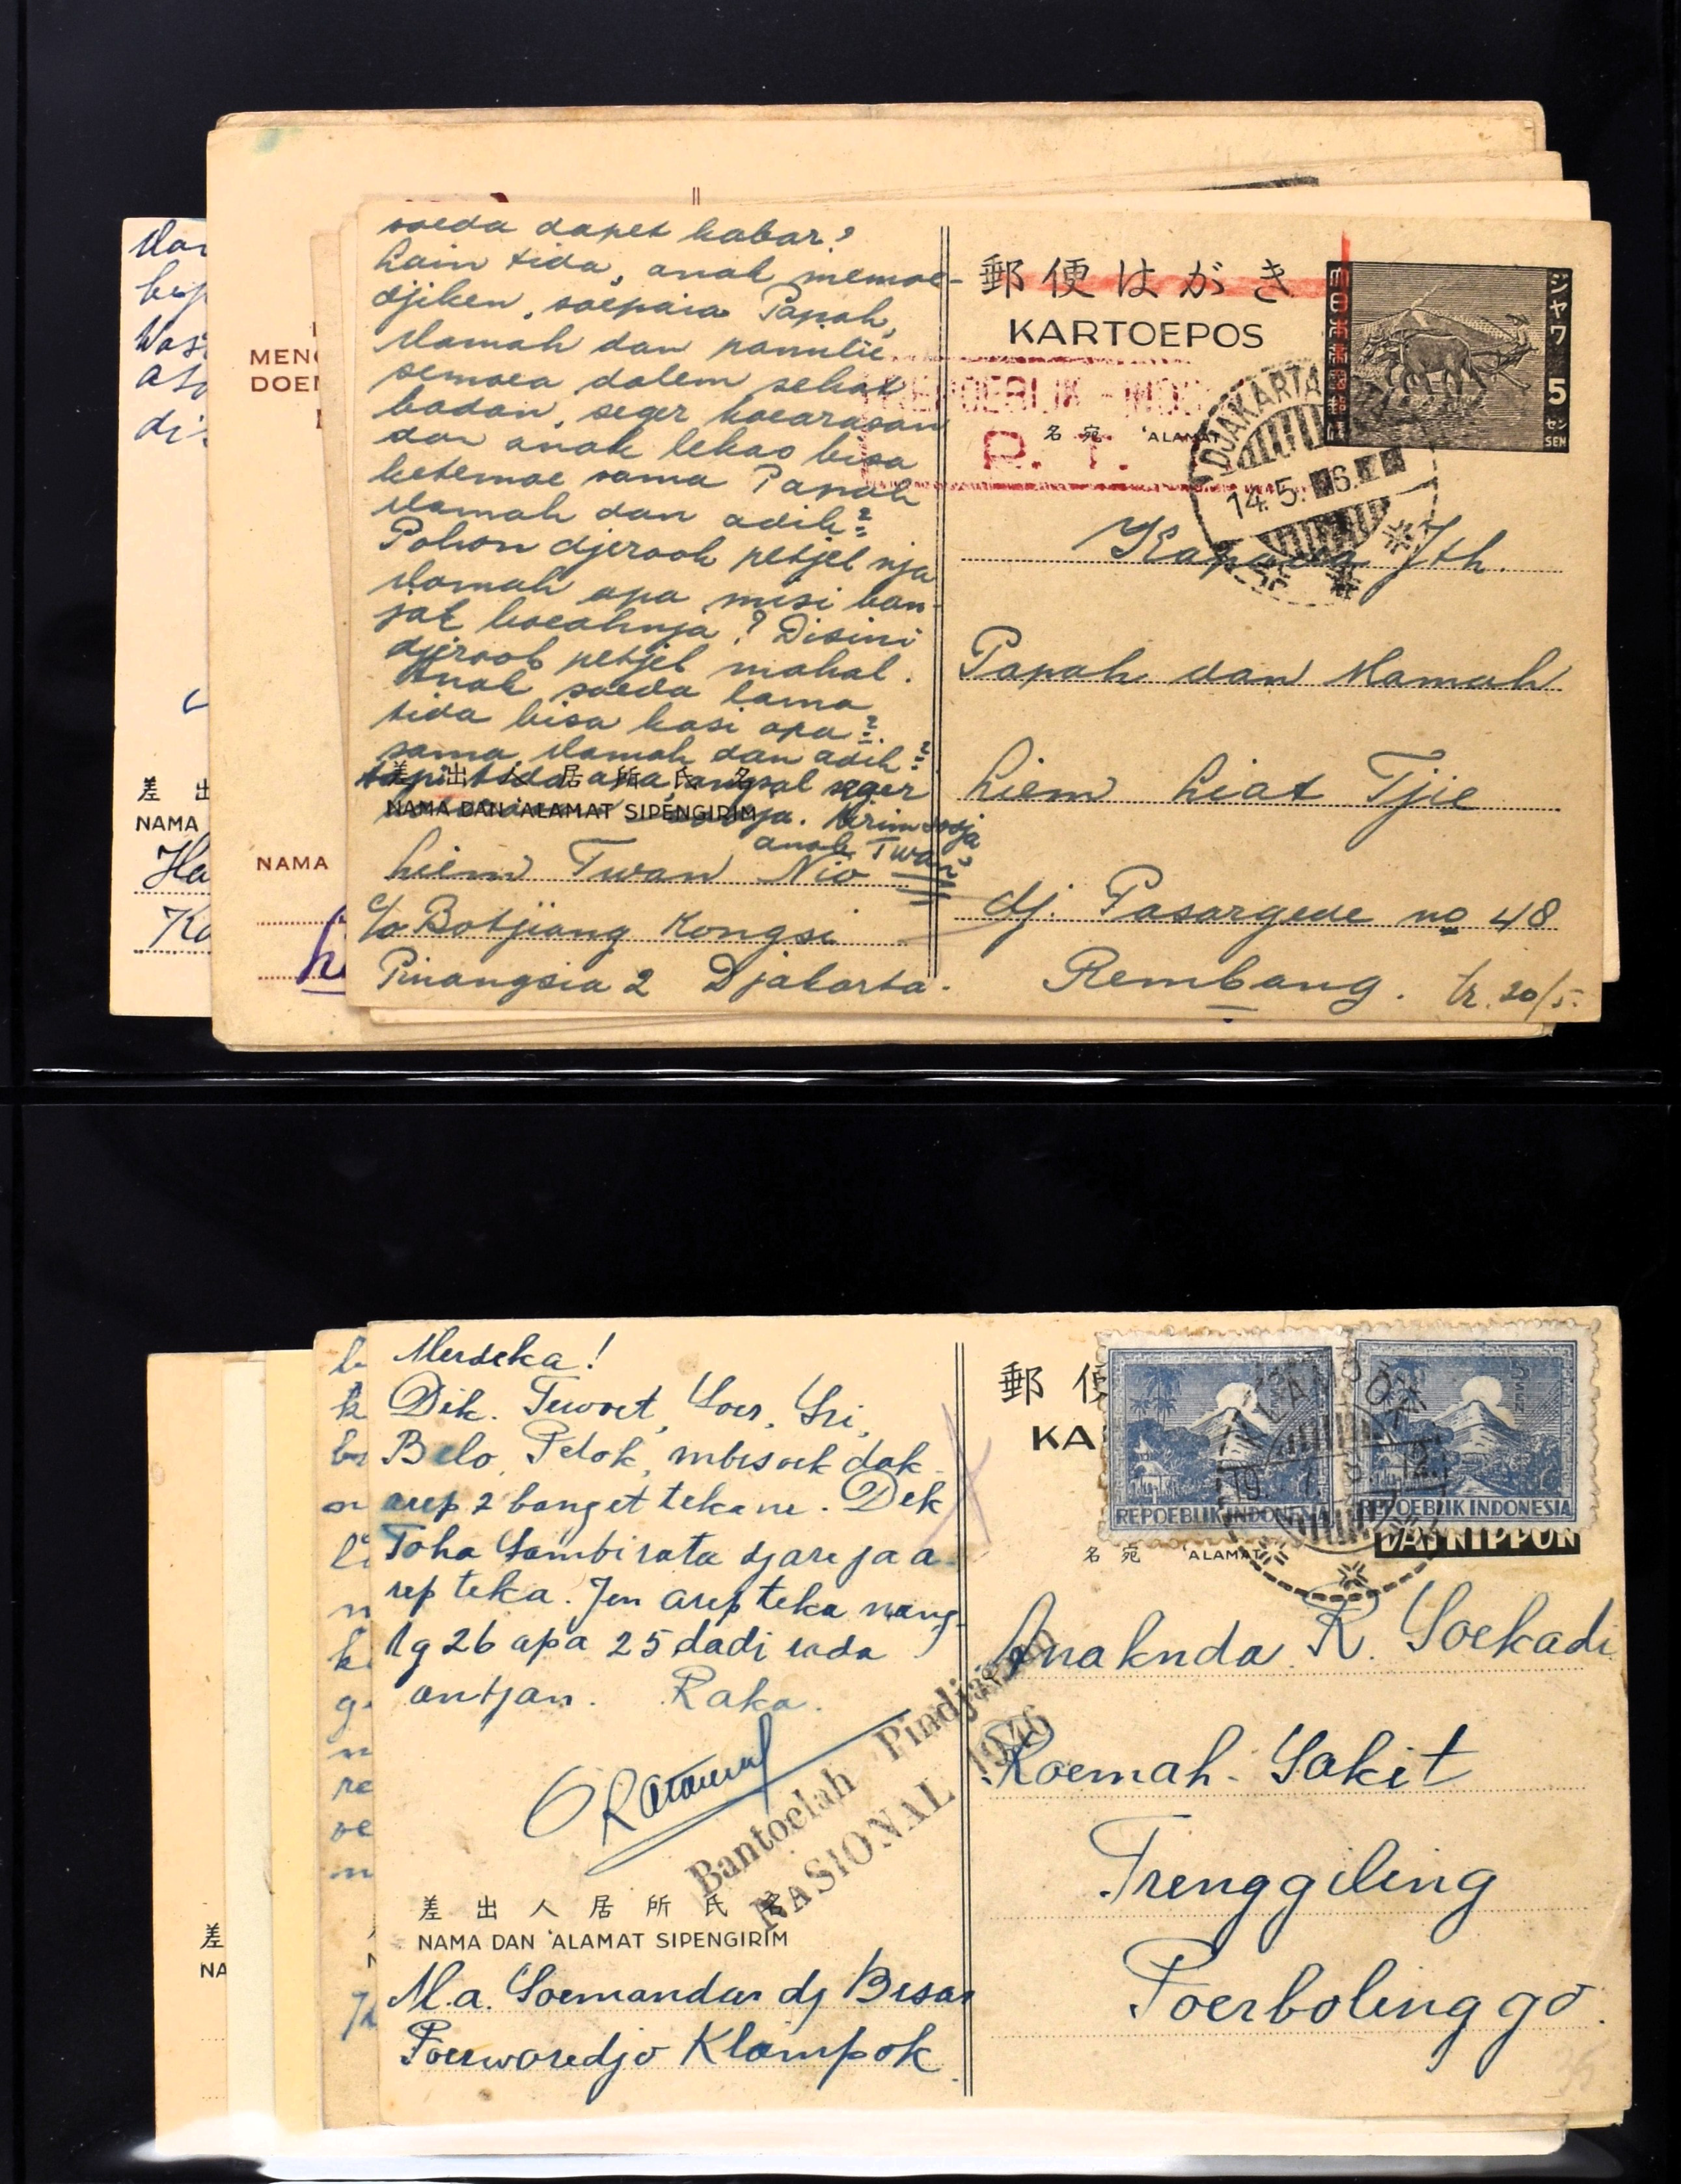 soeda dapet kabar?
Lain tida, anak memoe-
djiken, soepaia Papah,
Mamah dan pamilie
semoea dalem sehat
badan, seger koearasan
dan anak lekas bisa
ketemoe sama Papah
Mamah dan adik2
Pohon djeroek petjel nja
Mamah apa misi ban-
jak boeahnja? Disini
djeroek petjel mahal.
Anak soeda lama
tida bisa kasi apa2
sama Mamah dan adik2
tapi tida apa, angsal seger
差出人居所氏名
NAMA DAN 'ALAMAT SIPENGIRIM
sadja. Kirim sodja
anak Twan
Liem Twan Nio
c/o Botjiang Kongsi
Pinangsia 2 Djakarta.
郵便はがき
KARTOEPOS
REPOEBLIK - INDO
P. T.
名宛 'ALAMAT
ジャワ
5
セン
SEN
DJAKARTA
14.5. 6.
Kapada Jth.
Papah dan Mamah
Liem Liat Tjie
dj. Pasargede no 48
Rembang. tr. 20/5.
差出
NAMA
MENG
DOEN
NAMA
Merdeka!
Dik. Tuwoet, Soer, Sri,
Belo, Petok, mbisoek dak
arep2 banget tekane. Dek
Toha Sambirata djare ja a-
rep teka. Jen arep teka nang
tg 26 apa 25 dadi
antjan. Raka.
Bantoelah Pindjaman
NASIONAL 1946
差出人居所氏名
NAMA DAN 'ALAMAT SIPENGIRIM
M.a. Soemandar dj Besar
Poerworedjo Klampok
郵便
KA
REPOEBLIK INDONESIA
REPOEBLIK INDONESIA
KLAMPOK
NIPPON
名宛 'ALAMAT
Anaknda R. Soekadi
Roemah-Sakit
Trenggiling
Poerbolinggo.
差
NA